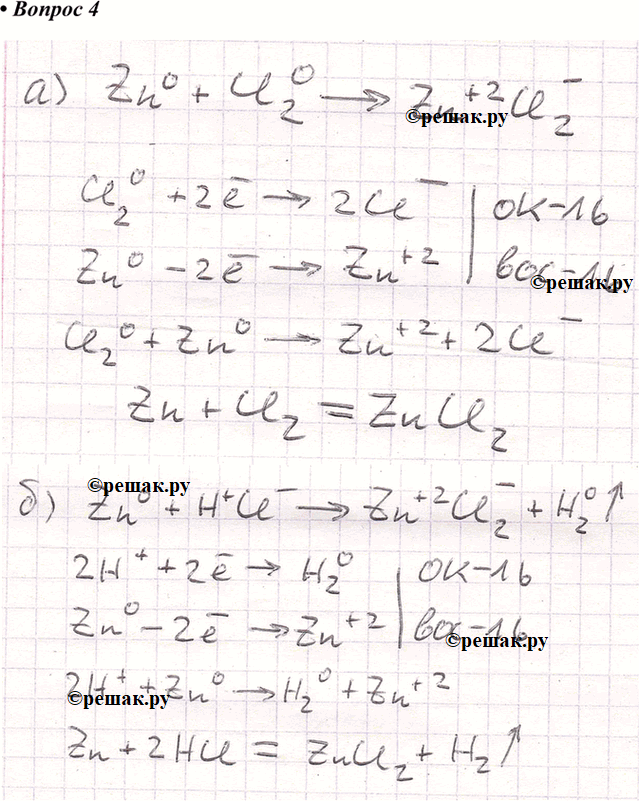 • Вопрос 4
а) Zn⁰ + Cl₂⁰ → Zn⁺²Cl₂⁻
©решак.ру
Cl₂⁰ + 2ē → 2Cl⁻ | ок-ль
Zn⁰ - 2ē → Zn⁺² | вос-ль
©решак.ру
Cl₂⁰ + Zn⁰ → Zn⁺² + 2Cl⁻
Zn + Cl₂ = ZnCl₂
©решак.ру
б) Zn⁰ + H⁺Cl⁻ → Zn⁺²Cl₂⁻ + H₂⁰↑
2H⁺ + 2ē → H₂⁰ | ок-ль
Zn⁰ - 2ē → Zn⁺² | вос-ль
©решак.ру
2H⁺ + Zn⁰ → H₂⁰ + Zn⁺²
©решак.ру
Zn + 2HCl = ZnCl₂ + H₂↑